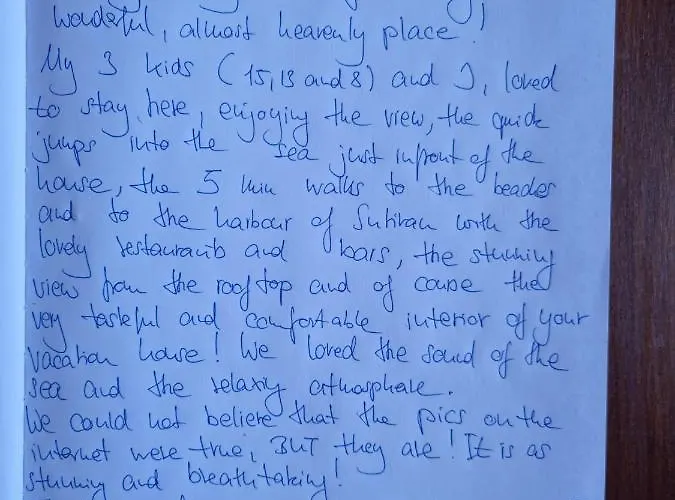 wonderful, almost heavenly place!
My 3 kids (15, 13 and 8) and I, loved
to stay here, enjoying the view, the quick
jumps into the sea just infront of the
house, the 5 min walks to the beaches
and to the harbour of Sutivan with the
lovely restaurants and bars, the stunning
view from the rooftop and of course the
very tasteful and comfortable interior of your
vacation house! We loved the sound of the
sea and the relaxing athmosphere.
We could not believe that the pics on the
internet were true, BUT they are! It is as
stunning and breathtaking!